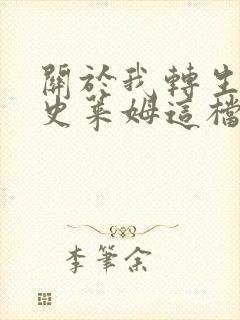 關於我轉生
史萊姆這檔
李筆余